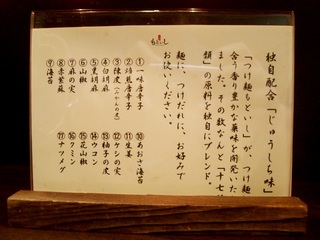 独自配合「じゅうしち味」
「つけ麺もといし」が、つけ麺に
合う香り豊かな薬味を開発いた
ました。その数なんと「十七
類」の原料を独自にブレンド。
麺に、つけだれに、お好みで
お使いください。
①一味唐辛子
②焙煎唐辛子
③陳皮(みかんの皮)
④白胡麻
⑤黒胡麻
⑥山椒
⑦麻の実
⑧赤紫蘇
⑨海苔
⑩あおさ海苔
⑪生姜
⑫ケシの実
⑬柚子の皮
⑭ウコン
⑮花山椒
⑯クミン
⑰ナツメグ